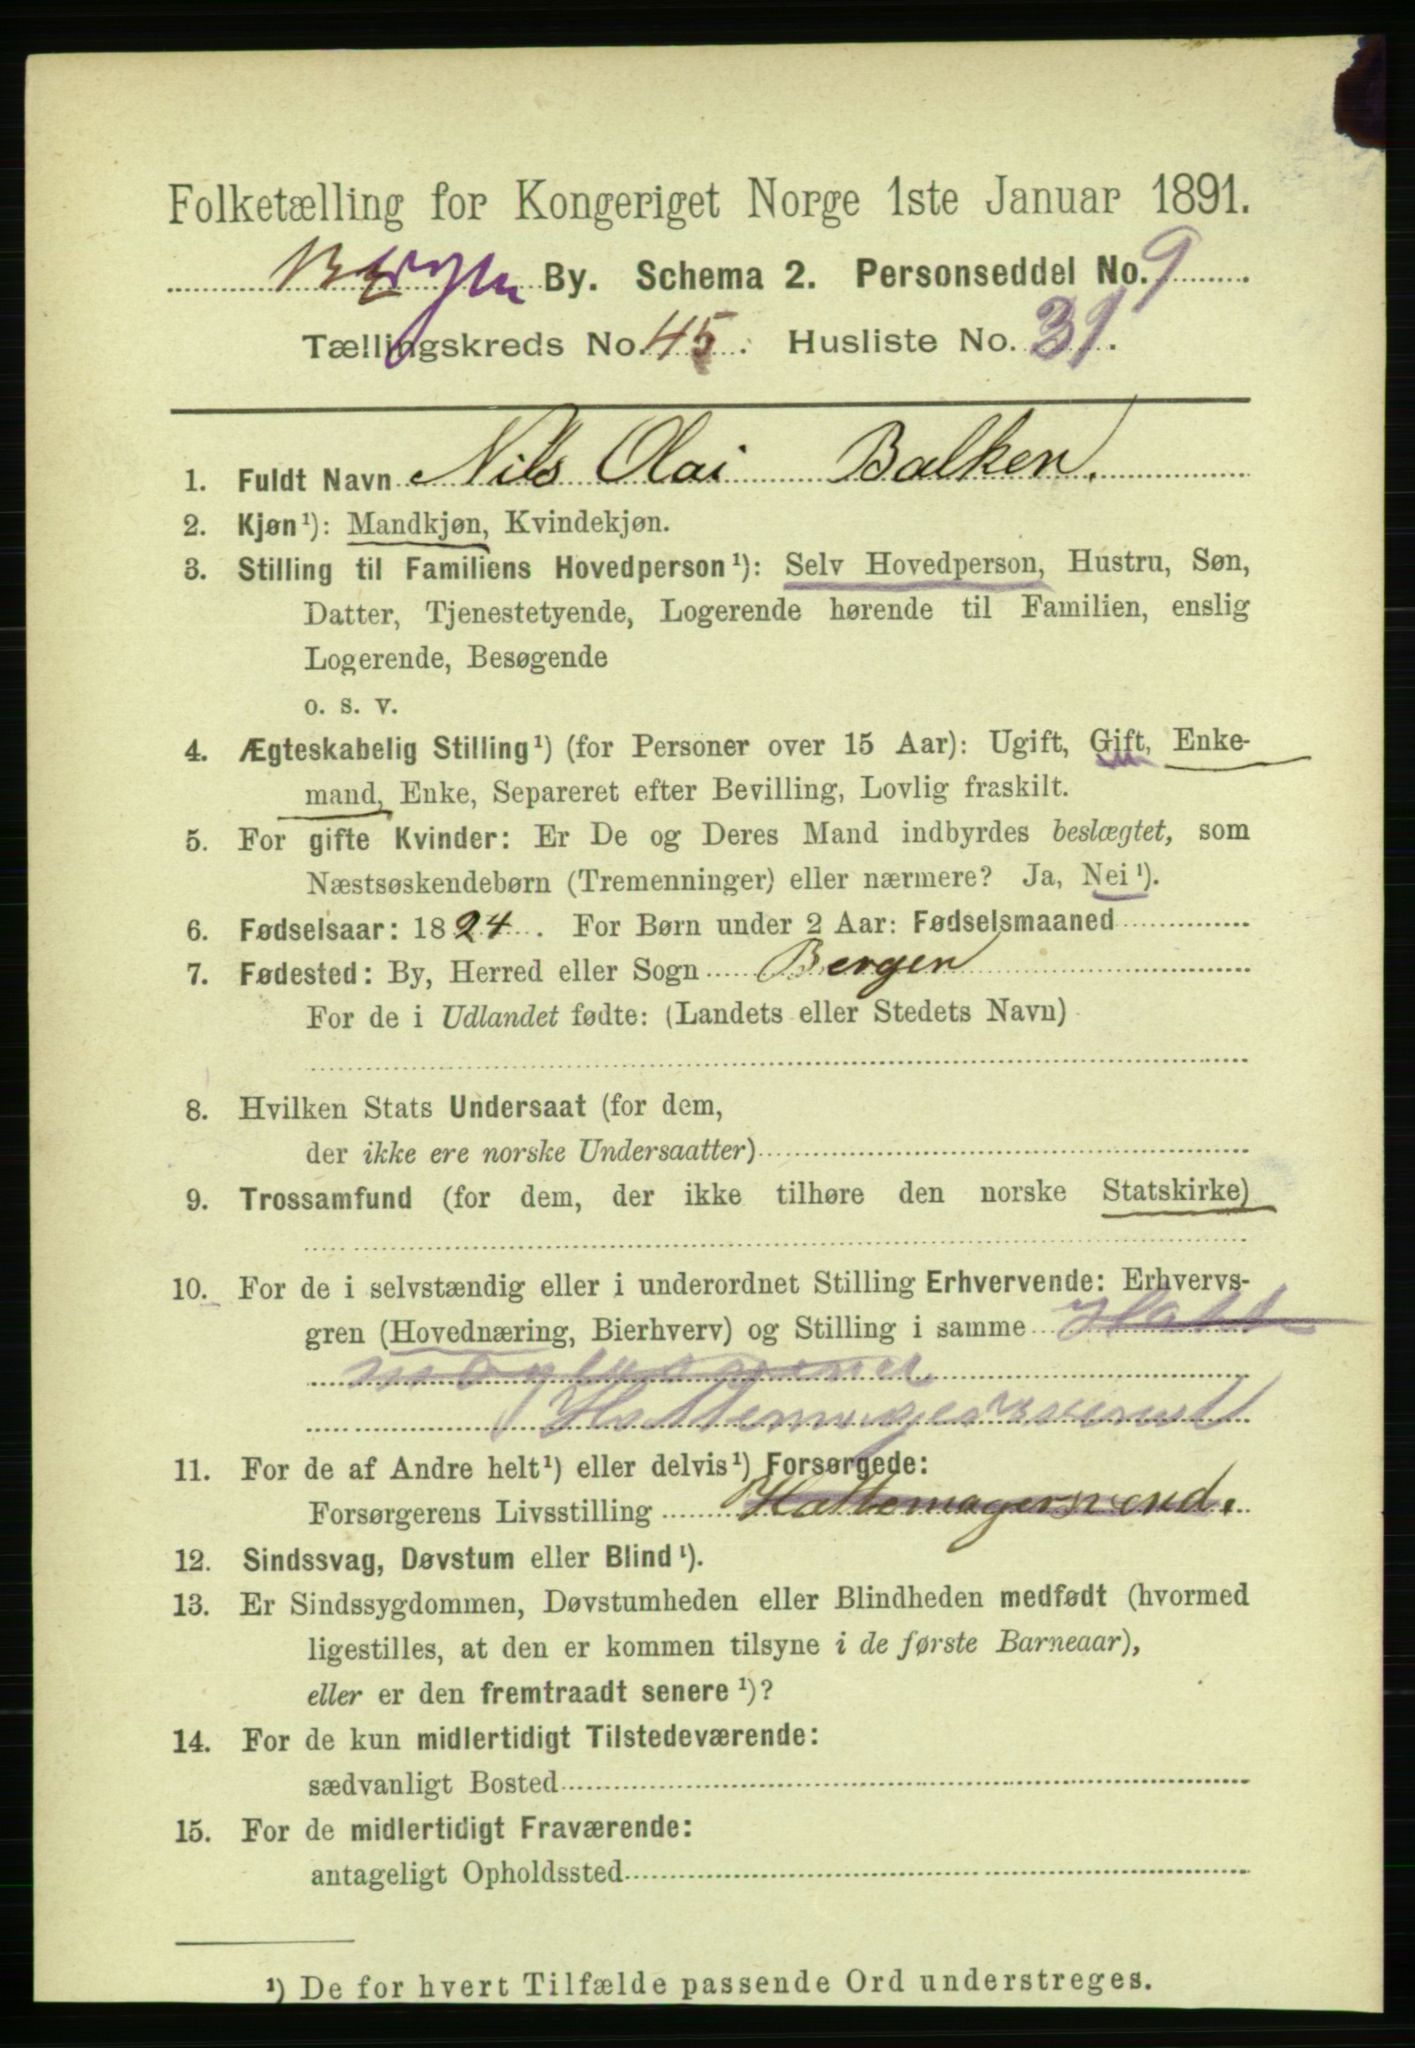 Folketælling for Kongeriget Norge 1ste Januar 1891.
Bergen By. Schema 2. Personseddel No. 9
Tællingskreds No. 45. Husliste No. 31.
1. Fuldt Navn Nils Olai Balken.
2. Kjøn¹): Mandkjøn, Kvindekjøn.
3. Stilling til Familiens Hovedperson¹): Selv Hovedperson, Hustru, Søn,
Datter, Tjenestetyende, Logerende hørende til Familien, enslig
Logerende, Besøgende
o. s. v.
4. Ægteskabelig Stilling¹) (for Personer over 15 Aar): Ugift, Gift, Enke-
mand, Enke, Separeret efter Bevilling, Lovlig fraskilt.
5. For gifte Kvinder: Er De og Deres Mand indbyrdes beslægtet, som
Næstsøskendebørn (Tremenninger) eller nærmere? Ja, Nei¹).
6. Fødselsaar: 1824. For Børn under 2 Aar: Fødselsmaaned
7. Fødested: By, Herred eller Sogn Bergen
For de i Udlandet fødte: (Landets eller Stedets Navn)
8. Hvilken Stats Undersaat (for dem,
der ikke ere norske Undersaatter)
9. Trossamfund (for dem, der ikke tilhøre den norske Statskirke)
10. For de i selvstændig eller i underordnet Stilling Erhvervende: Erhvervs-
gren (Hovednæring, Bierhverv) og Stilling i samme Hatt
Hattemagersvend
11. For de af Andre helt¹) eller delvis¹) Forsørgede:
Forsørgerens Livsstilling Hattemagersvend.
12. Sindssvag, Døvstum eller Blind¹).
13. Er Sindssygdommen, Døvstumheden eller Blindheden medfødt (hvormed
ligestilles, at den er kommen tilsyne i de første Barneaar),
eller er den fremtraadt senere¹)?
14. For de kun midlertidigt Tilstedeværende:
sædvanligt Bosted
15. For de midlertidigt Fraværende:
antageligt Opholdssted
¹) De for hvert Tilfælde passende Ord understreges.